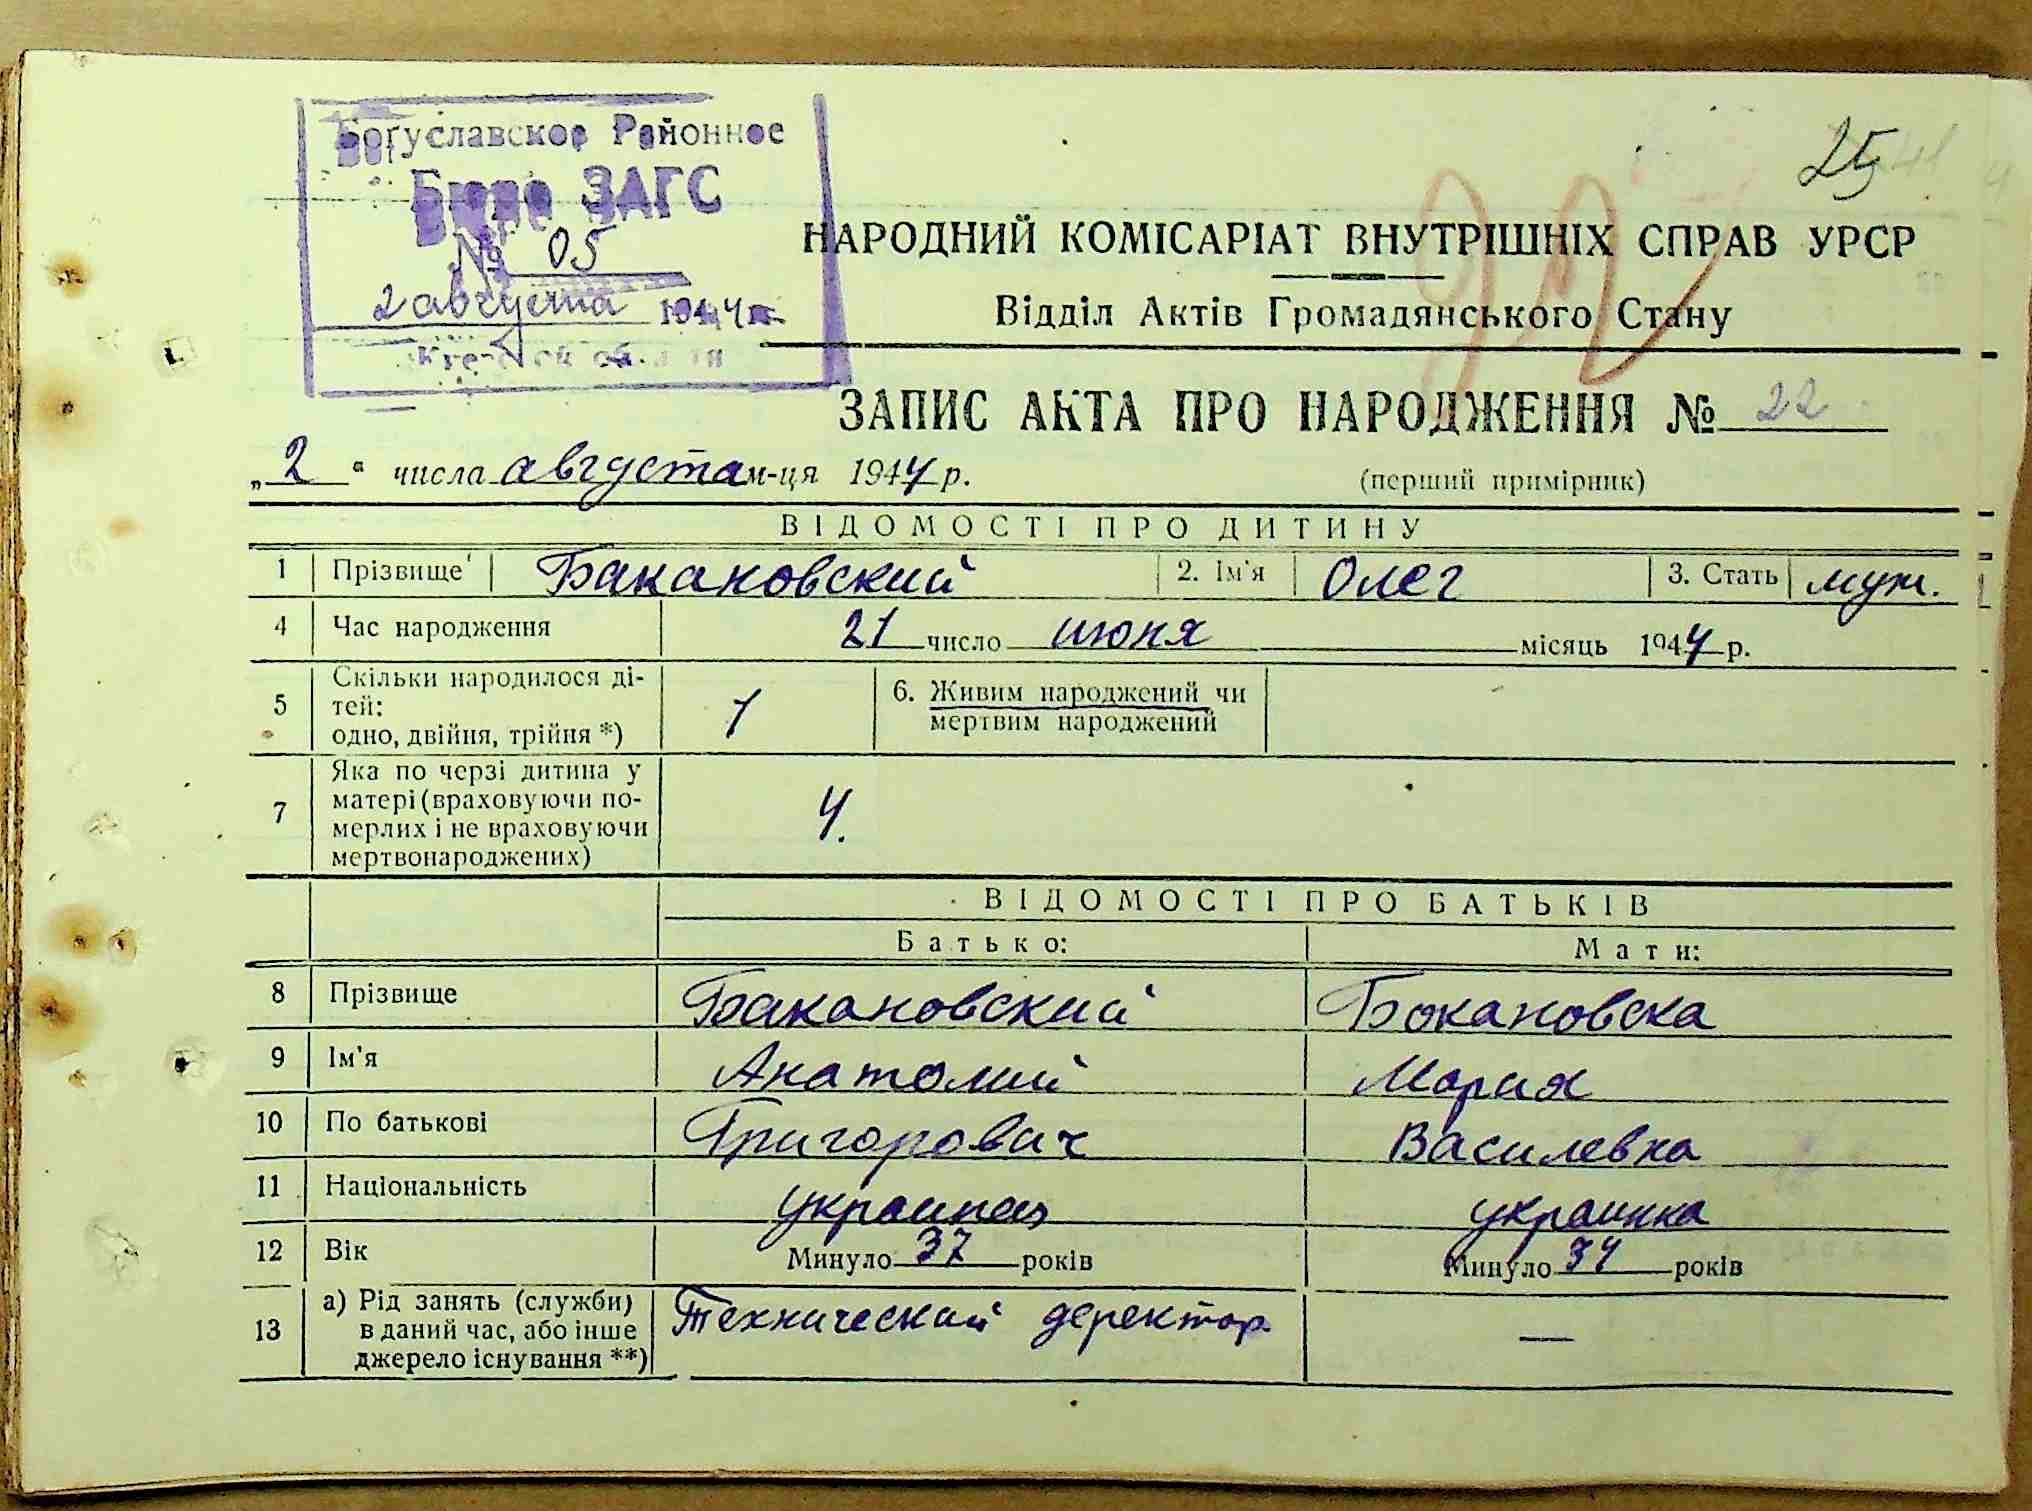 25
Богуславское Районное
Бюро ЗАГС
№ 05
2 августа 1944 г.
НАРОДНИЙ КОМІСАРІАТ ВНУТРІШНІХ СПРАВ УРСР
Відділ Актів Громадянського Стану
ЗАПИС АКТА ПРО НАРОДЖЕННЯ № 22
„2“ числа августа м-ця 1944 р. (перший примірник)
ВІДОМОСТІ ПРО ДИТИНУ
1 Прізвище Бакановский 2. Ім'я Олег 3. Стать муж.
4 Час народження 21 число июня місяць 1944 р.
5 Скільки народилося ді-
тей:
одно, двійня, трійня *) 1
6. Живим народжений чи
мертвим народжений
7 Яка по черзі дитина у
матері (враховуючи по-
мерлих і не враховуючи
мертвонароджених) 4.
ВІДОМОСТІ ПРО БАТЬКІВ
Батько: Мати:
8 Прізвище Бакановский Бокановска
9 Ім'я Анатолий Мария
10 По батькові Григорович Василевна
11 Національність украинец украинка
12 Вік Минуло 37 років Минуло 34 років
13 а) Рід занять (служби)
в даний час, або інше
джерело існування **) Технический деректор. —